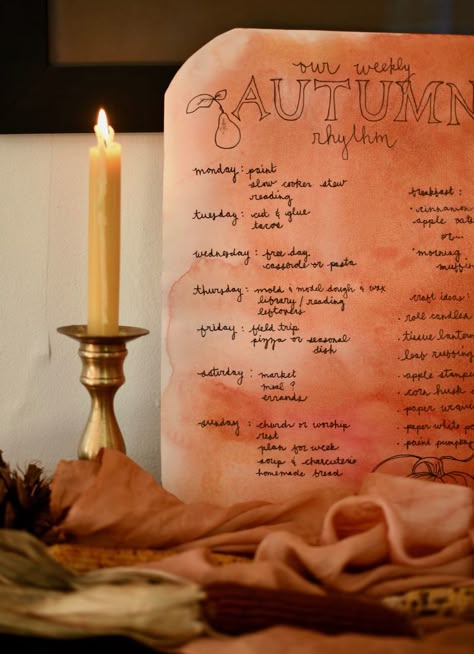 our weekly
AUTUMN
rhythm
monday : paint
slow cooker stew
reading
tuesday : cut & glue
tacos
wednesday : free day
casserole or pasta
thursday : mold & model dough & wax
library / reading
leftovers
friday : field trip
pizza or seasonal
dish
saturday : market
meal ?
errands
sunday : church or worship
rest
plan for week
soup & charcuterie
homemade bread
breakfast :
· cinnamon
apple oats
or...
· morning
muffins
craft ideas
· roll candles
· tissue lantern
· leaf rubbing
· apple stamping
· corn husk
· paper weaving
· paper white
· paint pumpkins